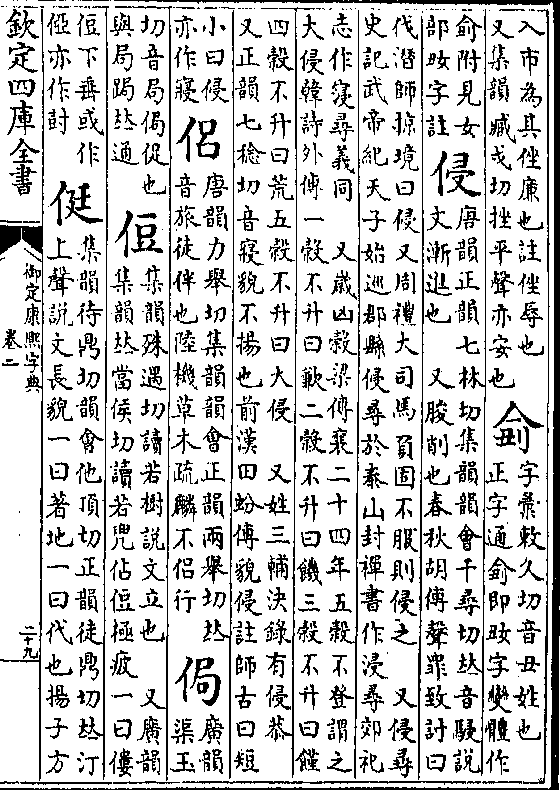 入市為其㑅廉也註㑅辱也
又集韻臧戈切挫平聲亦安也
字彙敕久切音丑姓也
正字通即㚻字變體作
附見女
部㚻字註
侵
唐韻正韻七林切集韻韻會千尋切𠀤音駸說
文漸進也 又朘削也春秋胡傳聲罪致討曰
伐潛師掠境曰侵又周禮大司馬負固不服則侵之 又侵尋
史記武帝紀天子始巡郡縣侵尋於泰山封禪書作浸尋郊祀
志作寖尋義同 又歲凶穀梁傳襄二十四年五穀不登謂之
大侵韓詩外傳一穀不升曰歉二穀不升曰饑三穀不升曰饉
四穀不升曰荒五穀不升曰大侵 又姓三輔決錄有侵恭
又正韻七稔切音寢貌不揚也前漢田蚡傳貌侵註師古曰短
小曰侵
亦作寢
侶
唐韻力舉切集韻韻會正韻兩舉切𠀤
音旅徒伴也陸機草木疏麟不侶行
侷
廣韻
渠玉
切音局侷促也
與局跼𠀤通
侸
集韻殊遇切讀若樹說文立也 又廣韻
集韻𠀤當侯切讀若兜佔侸極疲一曰僂
侸下垂或作
亦作尌
侹
集韻待鼎切韻會他頂切正韻徒鼎切𠀤汀
上聲說文長貌一曰著地一曰代也揚子方
欽定四庫全書
御定康熙字典
卷二
二十九